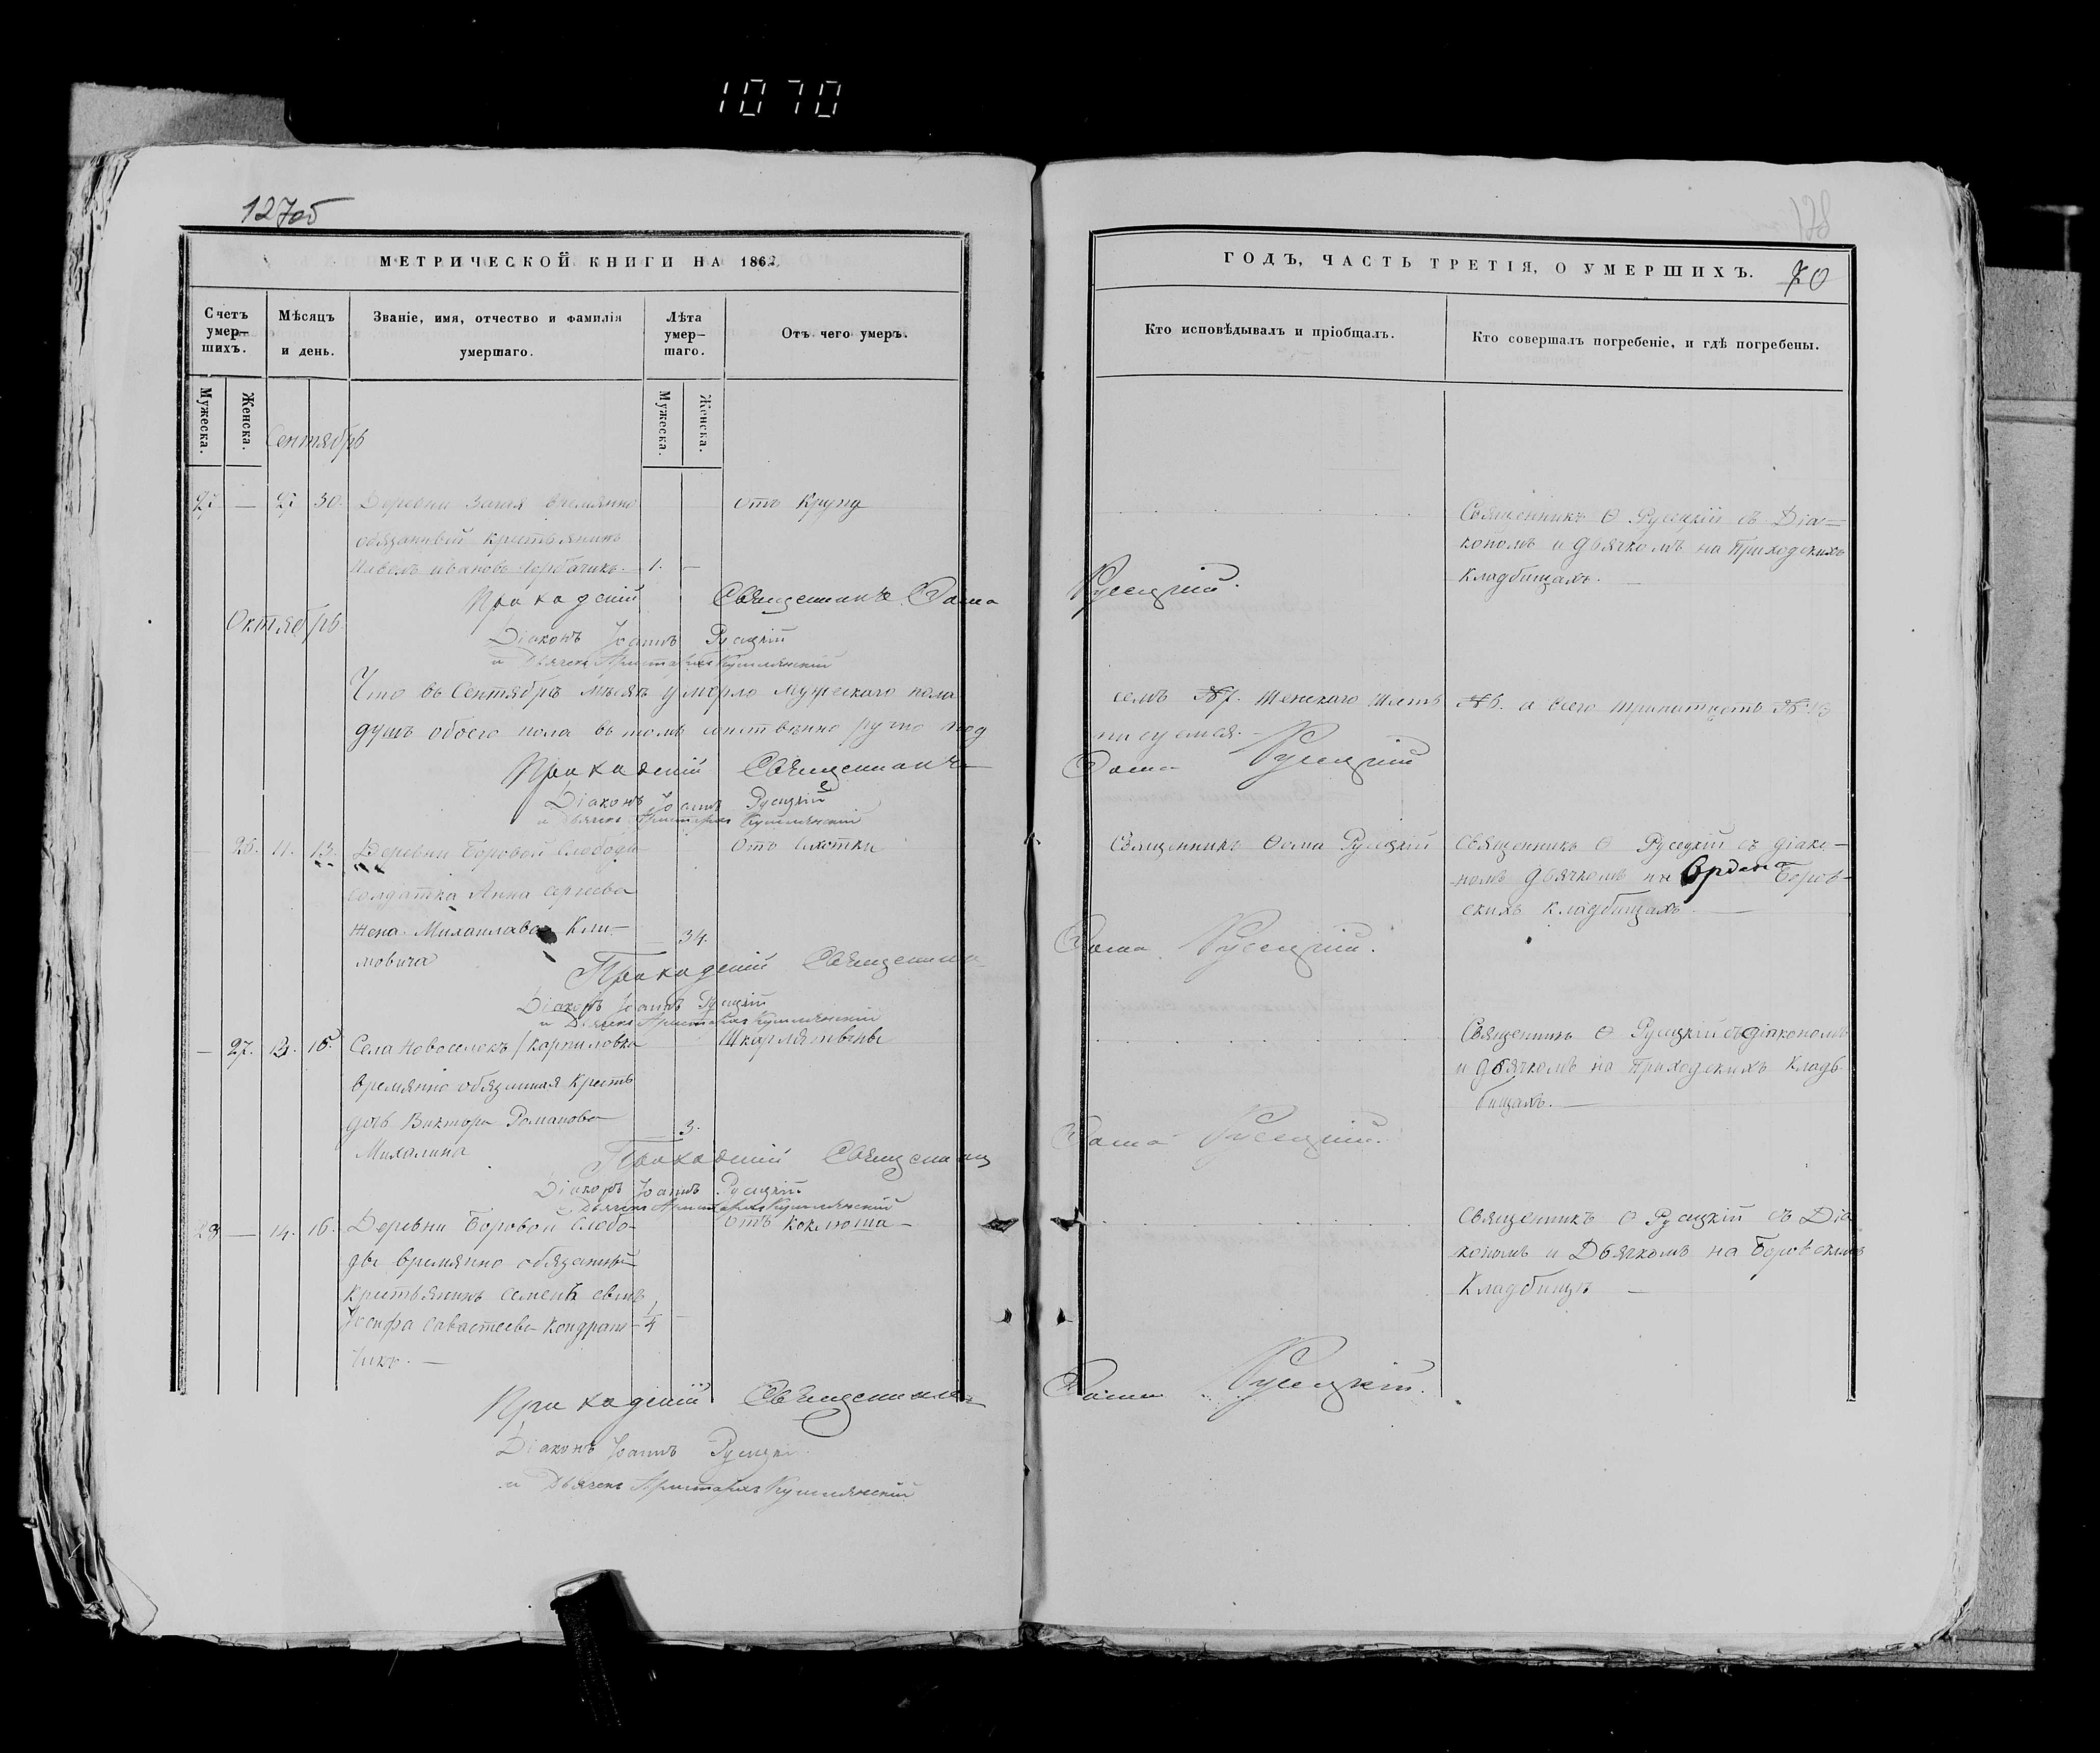 1070
127об
МЕТРИЧЕСКОЙ КНИГИ НА 186
Счетъ умер-шихъ.
Мѣсяцъ и день.
Званіе, имя, отчество и фамилія умершаго.
Лѣта умер-шаго.
Отъ чего умеръ.
Мужеска.
Женска.
Мужеска.
Женска.
Сентябрь
27 — 27 30. Деревни временно отъ Крупу
обязанный крестьянинъ
Павелъ Ивановъ Горбачикъ. 1. —
Приходскій Священникъ Ѳома
Октябрь.
Діаконъ Іоаннъ Русецкій
и Дьячекъ Аристархъ
Что въ Сентябрѣ мѣсяцѣ умерло мужескаго пола
душъ обоего пола въ томъ собственно ручно под
Приходскій Священникъ
Діаконъ Іоаннъ Русецкій
и Дьячекъ Аристархъ
— 26. 11. 13. Деревни Боровой Слободы Отъ Сухотки
Солдатка Анна Сергеева
жена Михаилава Кли-
мовича 34.
Приходскій Священникъ
Діаконъ Іоаннъ Русецкій
и Дьячекъ Аристархъ
— 27. 13. 15. Села Новоселокъ/Карпиловка Шкарлятины
временно обязанная Крест
дочь Виктора Романова
Михалина 3.
Приходскій Священникъ
Діаконъ Іоаннъ Русецкій
Дьячекъ Аристархъ
28 — 14. 16. Деревни Боровой Слобо- Отъ Коклюша —
ды временно обязанный
Крестьянинъ Семенъ сынъ
Іосифа Савастеева Кондрат- 1/4 —
чикъ. —
Приходскій Священникъ
Діаконъ Іоаннъ Русецкі
и Дьячекъ Аристархъ
128
ГОДЪ, ЧАСТЬ ТРЕТІЯ, О УМЕРШИХЪ.
70
Кто исповѣдывалъ и пріобщалъ.
Кто совершалъ погребеніе, и гдѣ погребены.
Священникъ Ѳ Русецкій съ Діа-
кономъ и дьячкомъ на Приходскихъ
Кладбищахъ. —
Русецкій.
семъ №7. Женскаго Шесть №6. а всего тринатцеть № 13
писуемся. —
Ѳома Русецкій
Священникъ Ѳома Русецкій
Священникъ Ѳ Русецкій съ діако-
номъ дьячкомъ на Боров-
скихъ кладбищахъ —
Ѳома Русецкій.
Священникъ Ѳ Русецкій съ діакономъ
и дьячкомъ на Приходскихъ Кладь
бищахъ. —
Ѳома Русецкій.
Священникъ Ѳ Русецкій съ Діа
кономъ и Дьячкомъ на Боровскомъ
Кладбищѣ —
Ѳома Русецкій.